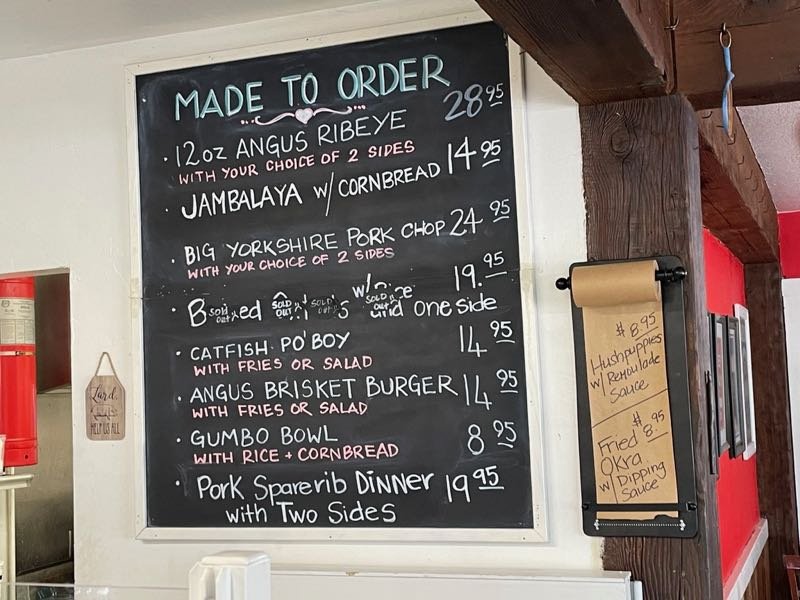 MADE TO ORDER
· 12oz ANGUS RIBEYE 28 95
WITH YOUR CHOICE OF 2 SIDES
· JAMBALAYA w/ CORNBREAD 14 95
· BIG YORKSHIRE PORK CHOP 24 95
WITH YOUR CHOICE OF 2 SIDES
· SOLD OUT SOLD OUT SOLD OUT SOLD OUT w/ 19.95
and one side
· CATFISH PO'BOY 14 95
WITH FRIES OR SALAD
· ANGUS BRISKET BURGER 14 95
WITH FRIES OR SALAD
· GUMBO BOWL 8 95
WITH RICE + CORNBREAD
· Pork Sparerib DINNER 19 95
with Two Sides
Lord,
HELP US ALL
$8.95
Hushpuppies
w/ Remoulade
Sauce
$8.95
Fried
Okra
w/ Dipping
Sauce